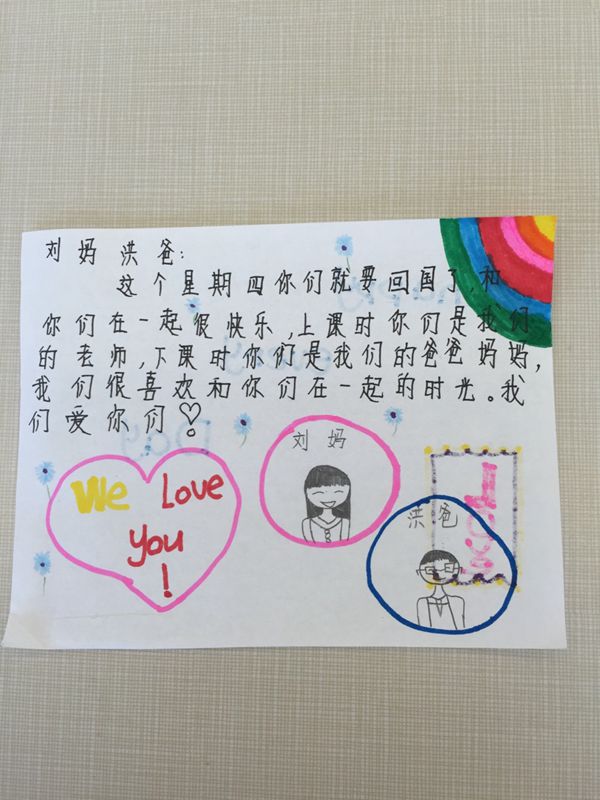 刘妈 洪爸:
这个星期四你们就要回国了,和
你们在一起很快乐,上课时你们是我们
的老师,下课时你们是我们的爸爸妈妈,
我们很喜欢和你们在一起的时光。我
们爱你们!
刘妈
洪爸
We Love
you
!